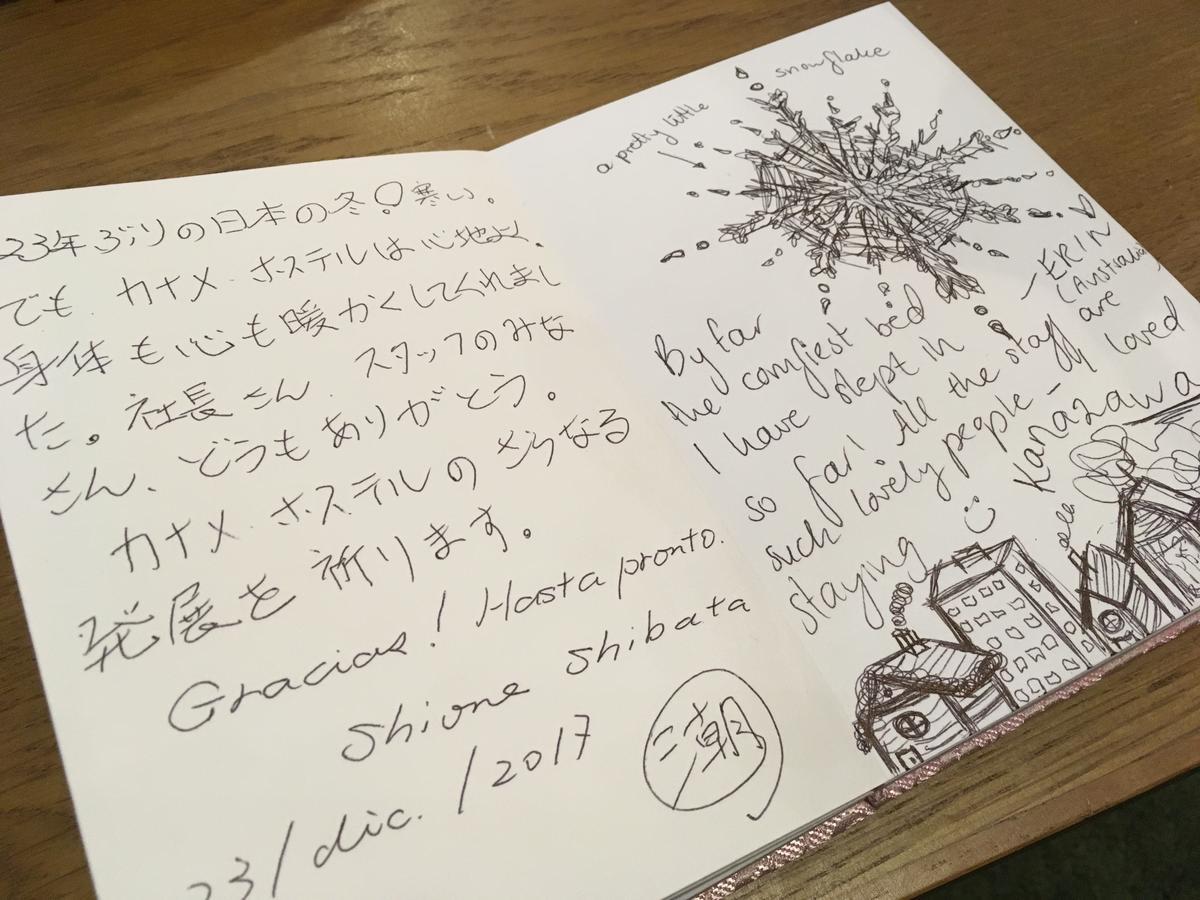 23年ぶりの日本の冬！寒い。
でも カナメ・ホステルは心地よく、
身体も心も暖かくしてくれまし
た。社長さん スタッフのみな
さん、どうもありがとう。
カナメ・ホステルのさらなる
発展を祈ります。
Gracias! Hasta pronto.
Shione Shibata
23/dic./2017
潮
snowflake
a pretty little
— ERIN
(Australia)
By far
the comfiest bed
I have slept in
so far! All the staff are
such lovely people – loved
staying Kanazawa